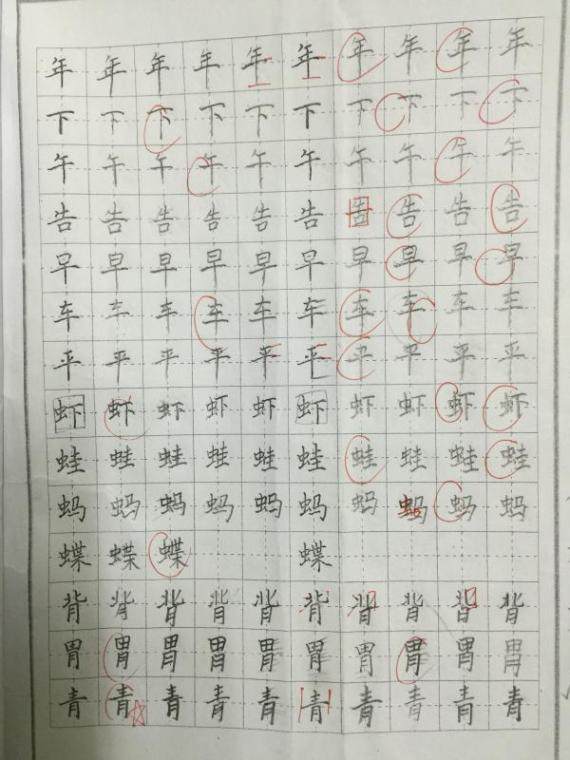 年年年年年年年年年年
下下下下下下下下下下
午午午午午午午午午午
告告告告告告告告告告
早早早早早早早早早早
车车车车车车车车车车
平平平平平平平平平平
虾虾虾虾虾虾虾虾虾虾
蛙蛙蛙蛙蛙蛙蛙蛙蛙蛙
蚂蚂蚂蚂蚂蚂蚂蚂蚂蚂
蝶蝶蝶蝶
背背背背背背背背背背
胃胃胃胃胃胃胃胃胃胃
青青青青青青青青青青